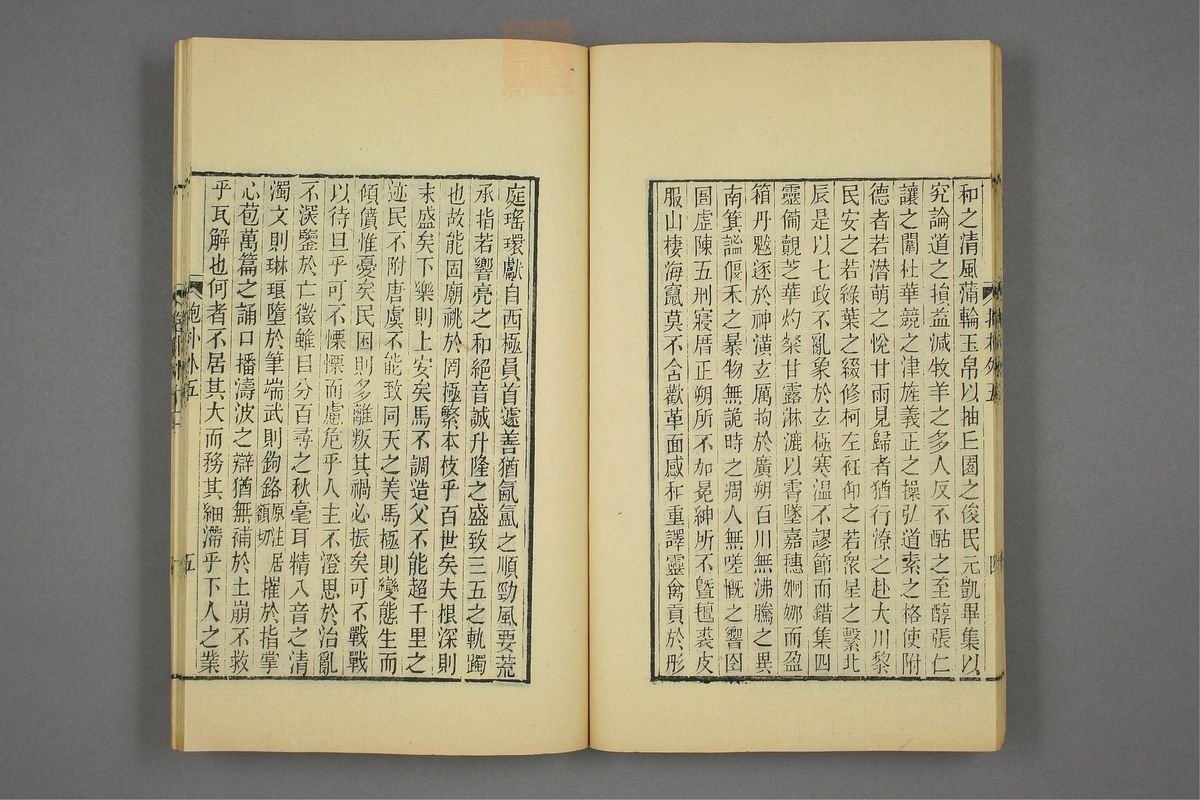 和之清風蒲輪玉帛以抽丘園之俊民元凱畢集以
究論道之損益減牧羊之多人反不酤之至醇張仁
讓之闈杜華競之津旌義正之操弘道素之格使附
德者若潛萌之悅甘雨見歸者猶行潦之赴大川黎
民安之若綠葉之綴修柯左衽仰之若衆星之繫北
辰是以七政不亂象於玄極寒温不謬節而錯集四
靈備覿芝華灼粲甘露淋漉以霄墜嘉穗婀娜而盈
箱丹魃逐於神潢玄厲拘於廣朔百川無沸騰之異
南箕謐偃禾之暴物無詭時之凋人無嗟慨之響囹
圄虛陳五刑寢厝正朔所不加冕紳所不暨氊裘皮
服山棲海竄莫不含歡革面感和重譯靈禽貢於彤
庭瑤環獻自西極員首遽善猶氤氳之順勁風要荒
承指若響亮之和絕音誠升隆之盛致三五之軌躅
也故能固廟祧於罔極繁本枝乎百世矣夫根深則
末盛矣下樂則上安矣馬不調造父不能超千里之
迹民不附唐虞不能致同天之美馬極則變態生而
傾僨惟憂矣民困則多離叛其禍必振矣可不戰戰
以待旦乎可不慄慄而慮危乎人主不澄思於治亂
不深鑒於亡徵雖目分百尋之秋毫耳精八音之清
濁文則琳琅墮於筆端武則鉤鉻原注居額切摧於指掌
心苞萬篇之誦口播濤波之辯猶無補於土崩不救
乎瓦解也何者不居其大而務其細滯乎下人之業
抱朴外五
五